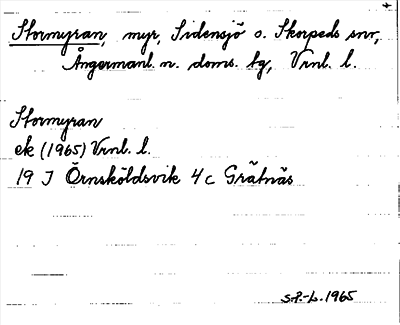 Stormyran, myr, Sidensjö o. Skorpeds snr,
Ångermanl. n. doms. tg, Vrnl. l.
Stormyran
ek (1965) Vrnl. l.
19 J Örnsköldsvik 4c Grätnäs
S.P.-L. 1965